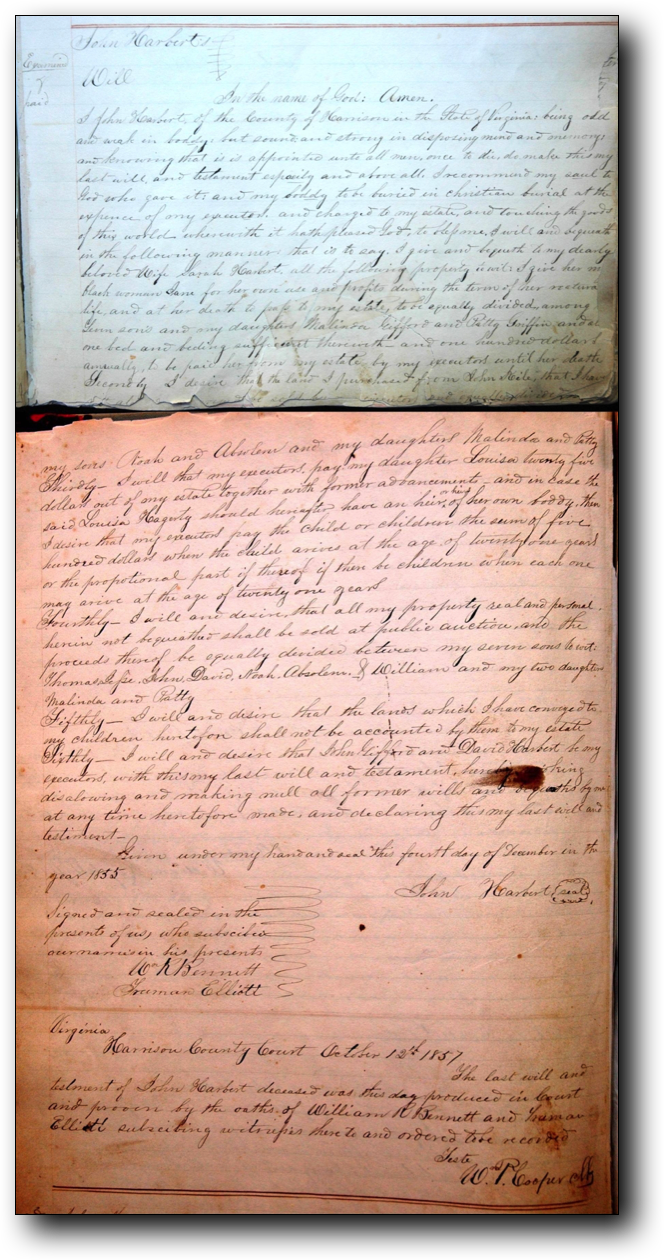 John Harbert's
Examined
Will
In the name of God: Amen.
I John Harbert, of the County of Harrison in the State of Virginia: being old
and weak in boddy, but sound and strong in disposing mind and memory:
and knowing that is is appointed unto all men, once to die, do make this my
last will and testament especily and above all. I recommend my soul to
God who gave it: and my boddy to be buried in christian burial at the
expence of my executor. and charged to my estate, and touching the goods
of this world wherewith it hath pleased God to dispose, I will and bequeath
in the following manner: that is to say. I give and bequeth to my dearly
beloved Wife Sarah Harbert, all the following property I give her
black woman Jane for her own use and profits during the term of her
life, and at her death to pass to my estate, to be equally divided among
sons and my daughters Malinda Gifford and Patty Griffin, and
one bed and beding sufficient therewith and one hundred dollars
annually, to be paid her from my estate by my executors until her death
Secondly I desire that the land I purchased from John that I have
my sons Noah and Absolem and my daughters Malinda and Patty
Thirdly— I will that my executors, pay my daughter Louisa twenty five
dollar out of my estate together with former advancements, and in case the
said Louisa Hagerty should hereafter have an heir, or heirs of her own boddy, then
I desire that my executors pay the child or children the sum of five
hundred dollars when the child arives at the age of twenty one years
or the propotional part if thereof if there be children when each one
may arive at the age of twenty one years
Fourthly— I will and desire, that all my property real and personal.
herein not bequeathed shall be sold at public auction, and the
proceeds thereof be equally divided between my seven sons to wit:
Thomas, Jesse, John, David, Noah, Absolem, & William and my two daughters
Malinda and Patty
Fifthly— I will and desire that the lands which I have conveyed to
my children heretofore shall not be accounted by them to my estate
Sixthly— I will and desire that John Gifford and David Harbert be my
executors, with this my last will and testament, hereby
disalowing and making null all former wills and bequeaths by me
at any time heretofore made, and declaring this my last will and
testiment—
Given under my hand and seal this fourth day of December in the
year 1855
John Harbert (seal)
Signed and sealed in the
presents of us, who subscibed
our names in his presents
Wm R Bennett
Truman Elliott
Virginia
Harrison County Court October 12th 1857
The last will and
testment of John Harbert deceased was this day produced in Court
and proven by the oaths of William R Bennett and Truman
Elliott subscibing witnesses thereto and ordered to be recorded
Teste
Wm P. Cooper Clk